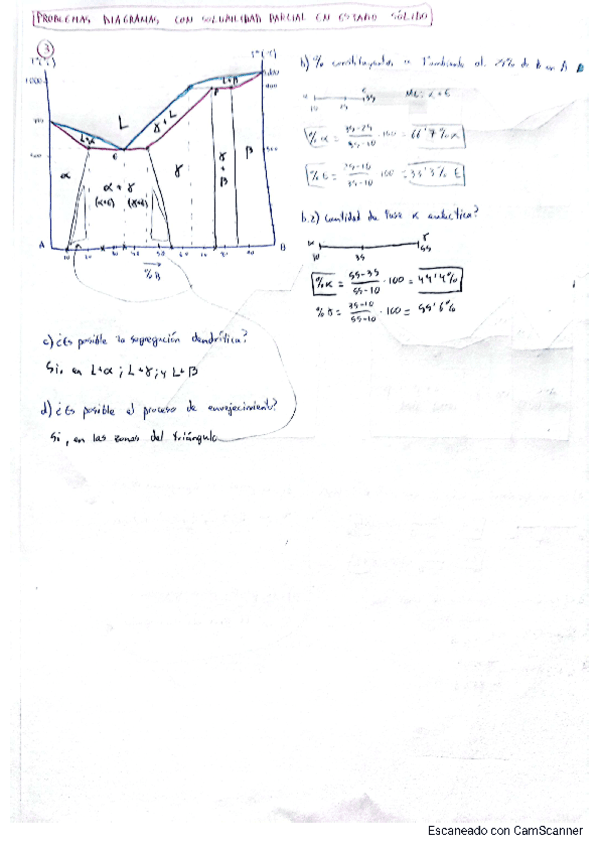 PROBLEMAS DIAGRAMAS CON SOLUBILIDAD PARCIAL EN ESTADO SÓLIDO
3
1000
L
L+α
γ+L
L+β
α
α+γ
(α+E)
(γ+E)
γ
γ+β
β
A
B
% B
b) % constituyentes 25% de B en A
10 25 35
% α = 35-25 / 35-10 · 100 = 66'7% α
% E = 25-10 / 35-10 · 100 = 33'3% E
b.2) cantidad de fase α eutéctica?
α γ
10 35 55
% α = 55-35 / 55-10 · 100 = 44'4%
% γ = 35-10 / 55-10 · 100 = 55'6%
c) ¿Es posible la segregación dendrítica?
Si, en L+α; L+γ; y L+β
d) ¿Es posible el proceso de envejecimiento?
Si, en las zonas del triángulo
Escaneado con CamScanner